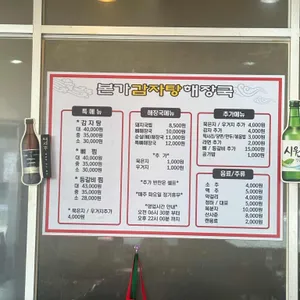 본가감자탕해장국
특메뉴
* 감 자 탕
대 40,000원
중 35,000원
소 30,000원
* 뼈 찜
대 40,000원
중 35,000원
소 30,000원
* 등갈비 찜
대 40,000원
중 35,000원
소 28,000원
* 볶은지 / 우거지추가
4,000원
해장국메뉴
돼지국밥 8,500원
뼈해장국 10,000원
순살해장국 11,000원
특뼈해장국 12,000원
* 추가 *
볶은지 1,000원
우거지 1,000원
*추가 반찬은 셀프*
*매주 화요일 정기휴무*
*영업시간 안내*
오전 06시 30분 부터
오후 22시 00분 까지
추가메뉴
볶은지 / 우거지 4,000원
감자 4,000원
떡사리/당면/만두/볶음밥 3,000원
라면 2,000원
뼈 / 등갈비 추가 15,000원
공기밥 1,000원
음료/주류
소 주 4,000원
맥 주 5,000원
막걸리 4,000원
청하 / 대포 5,000원
복분자 10,000원
산사춘 8,000원
캔음료 2,000원
시원